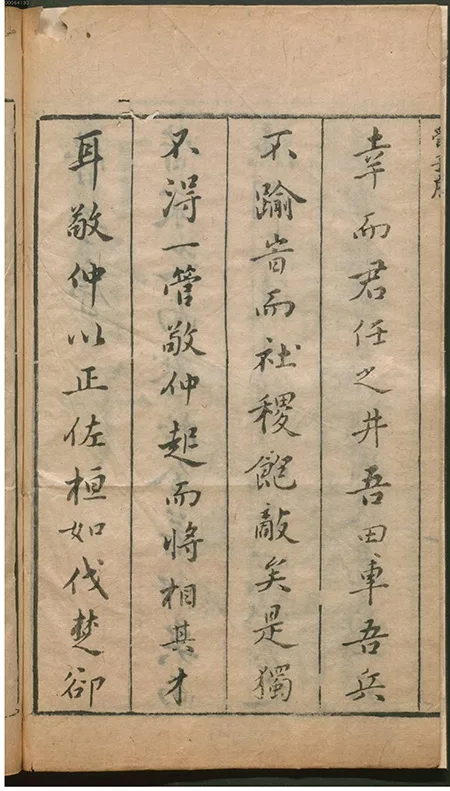 幸而君任之井吾田車吾兵
不踰旹而社稷飽敵矣是獨
不淂一管敬仲起而將相其才
耳敬仲以正佐桓如伐楚卻